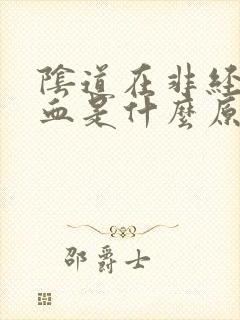 陰道在非經
血是什麼原
邵爵士